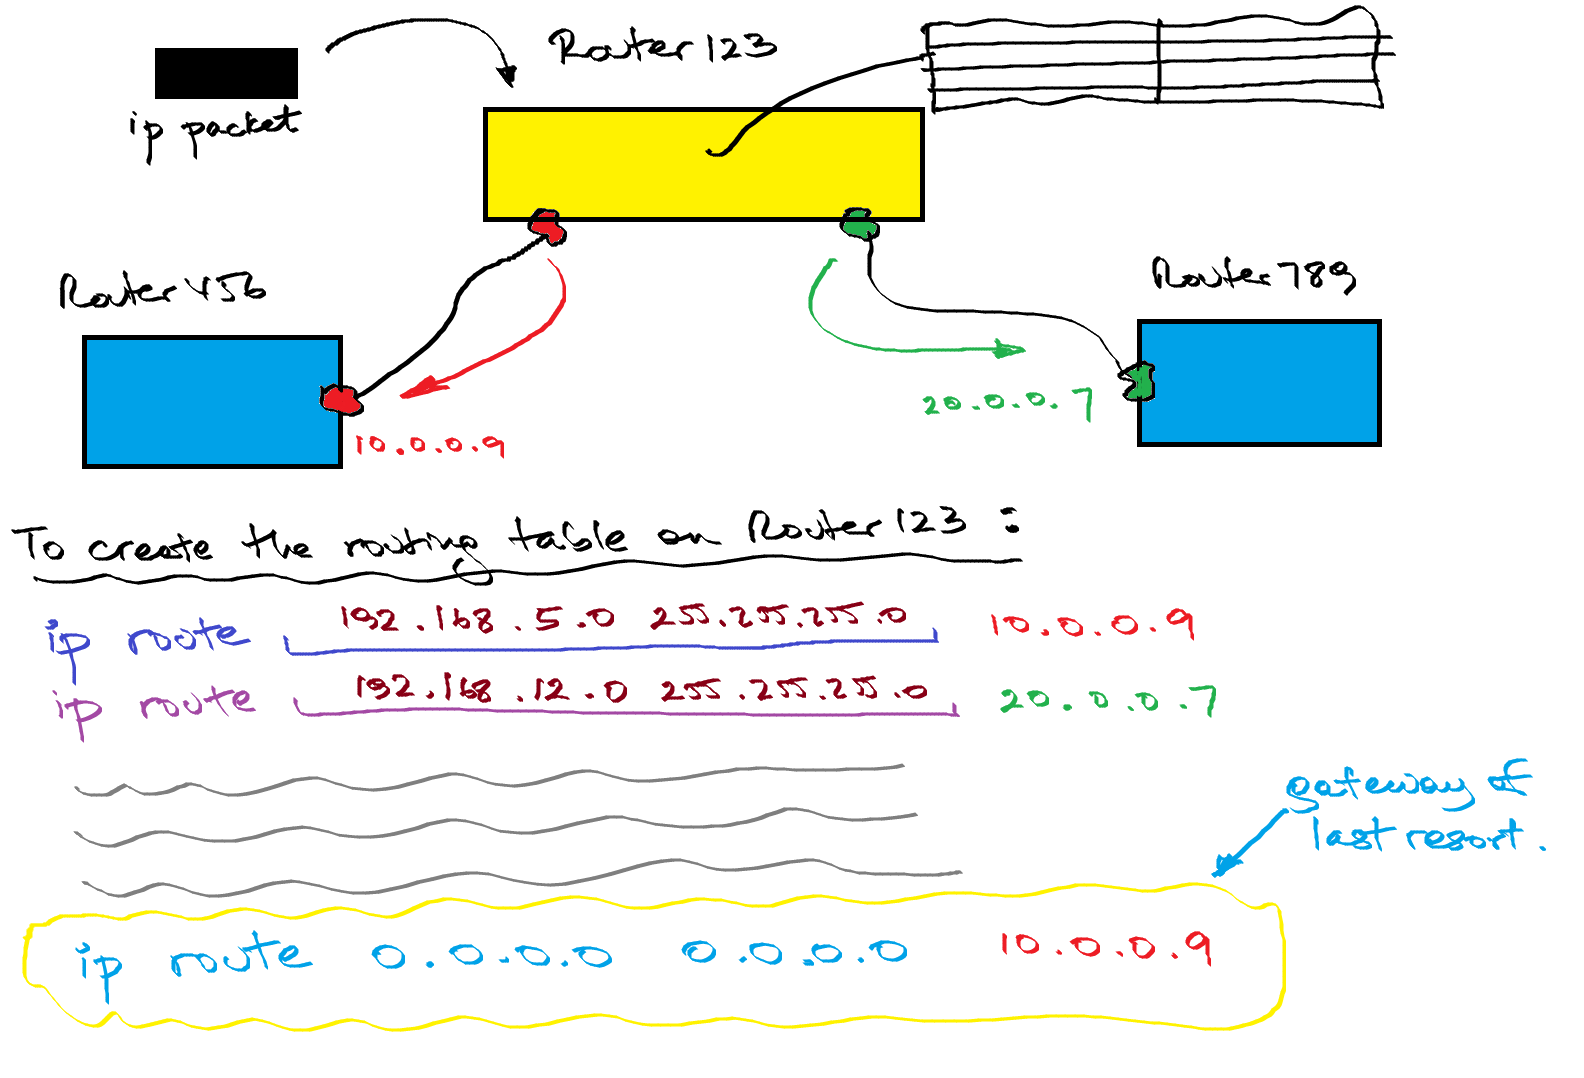 Router 123
ip packet
Router 456
Router 789
20.0.0.7
10.0.0.9
To create the routing table on Router 123 :
ip route 192.168.5.0 255.255.255.0 10.0.0.9
ip route 192.168.12.0 255.255.255.0 20.0.0.7
gateway of
last resort.
ip route 0.0.0.0 0.0.0.0 10.0.0.9